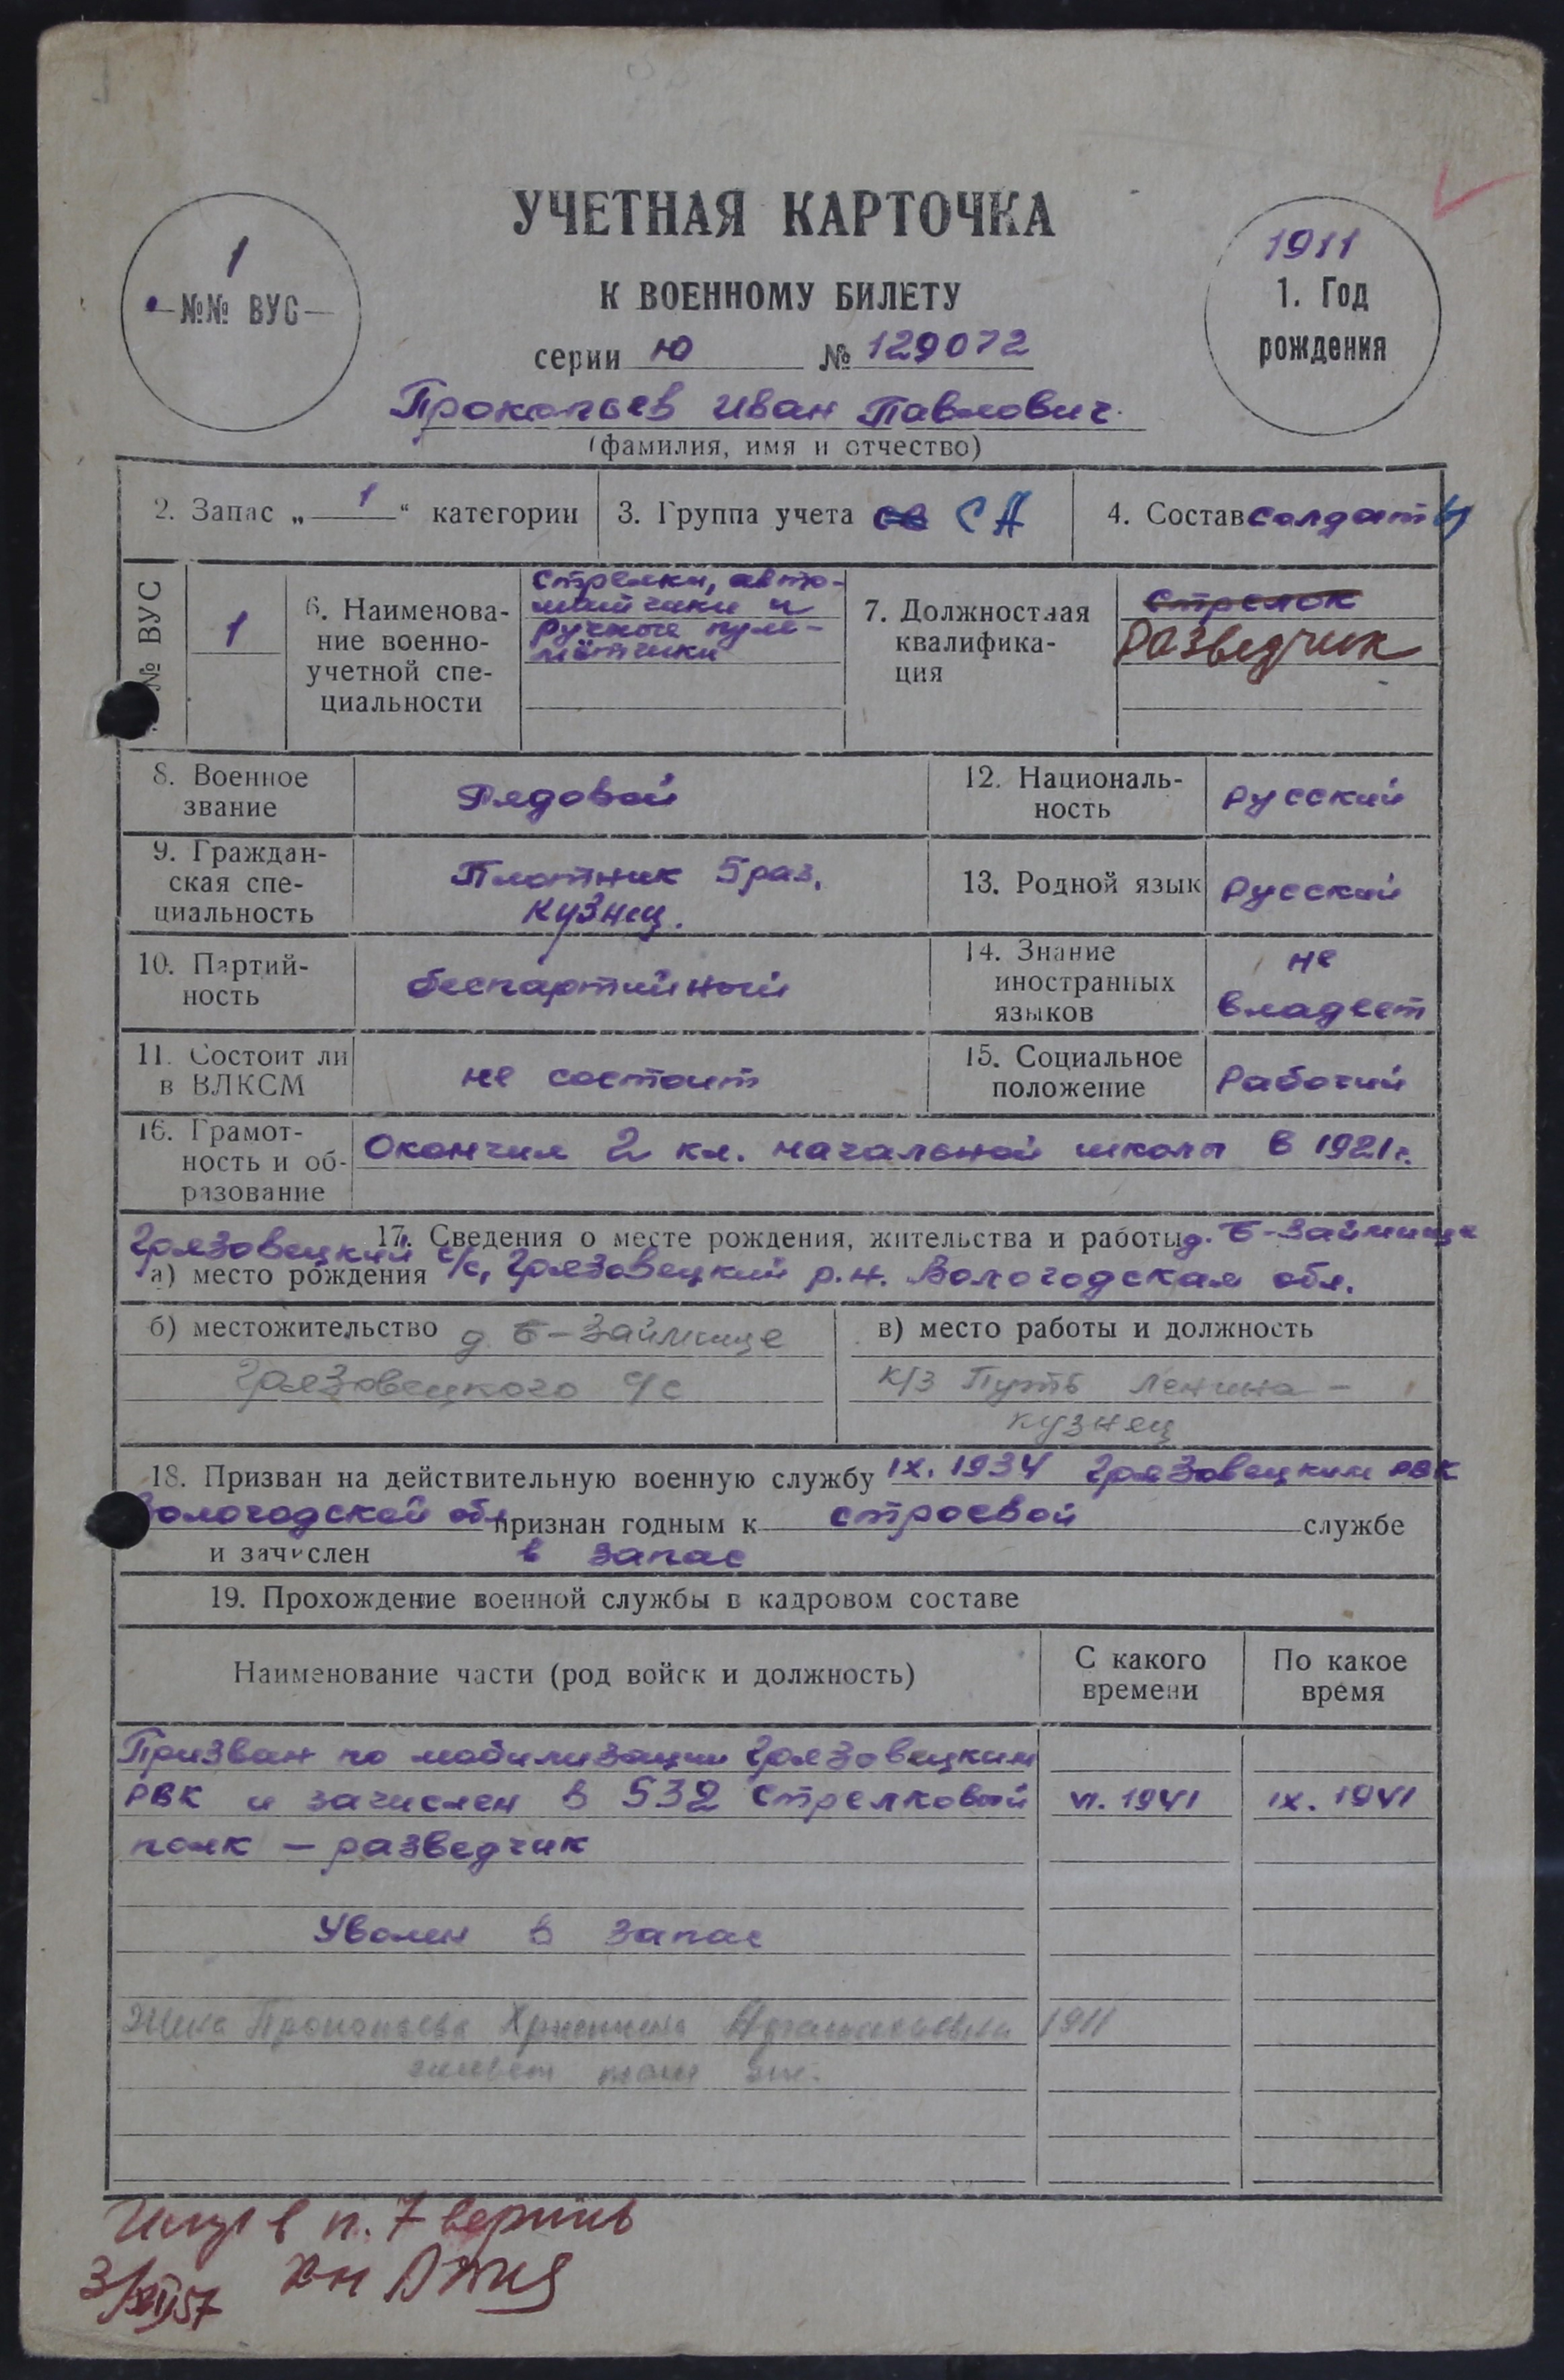 УЧЕТНАЯ КАРТОЧКА
1
№№ ВУС
К ВОЕННОМУ БИЛЕТУ
1911
1. Год
рождения
серии Ю № 129072
Прокопьев Иван Павлович.
(фамилия, имя и отчество)
2. Запас „ 1 “ категории
3. Группа учета СА
4. Состав солдаты
№ ВУС
1
6. Наименова-
ние военно-
учетной спе-
циальности
Стрелки, авто-
матчики и
ручные пуле-
мётчики
7. Должностная
квалифика-
ция
Стрелок
Разведчик
8. Военное
звание
Рядовой
12. Националь-
ность
Русский
9. Граждан-
ская спе-
циальность
Плотник 5 раз.
Кузнец.
13. Родной язык
Русский
10. Партий-
ность
беспартийный
14. Знание
иностранных
языков
не
владеет
11. Состоит ли
в ВЛКСМ
не состоит
15. Социальное
положение
Рабочий
16. Грамот-
ность и об-
разование
Окончил 2 кл. начальной школы в 1921 г.
17. Сведения о месте рождения, жительства и работы д. Б-Займище
Грязовецкий с/с, Грязовецкий р.н. Вологодская обл.
а) место рождения
б) местожительство д. Б-Займище
Грязовецкого с/с
в) место работы и должность
к/з Путь Ленина -
кузнец
18. Призван на действительную военную службу IX. 1934 Грязовецким РВК
Вологодской обл признан годным к строевой службе
и зачислен в запас
19. Прохождение военной службы в кадровом составе
Наименование части (род войск и должность)
С какого
времени
По какое
время
Призван по мобилизации Грязовецким
РВК и зачислен в 532 Стрелковый VI. 1941 IX. 1941
полк – разведчик
Уволен в запас
Жена Прокопьева 1911
живёт
в п. 7 верить
3/XII 57